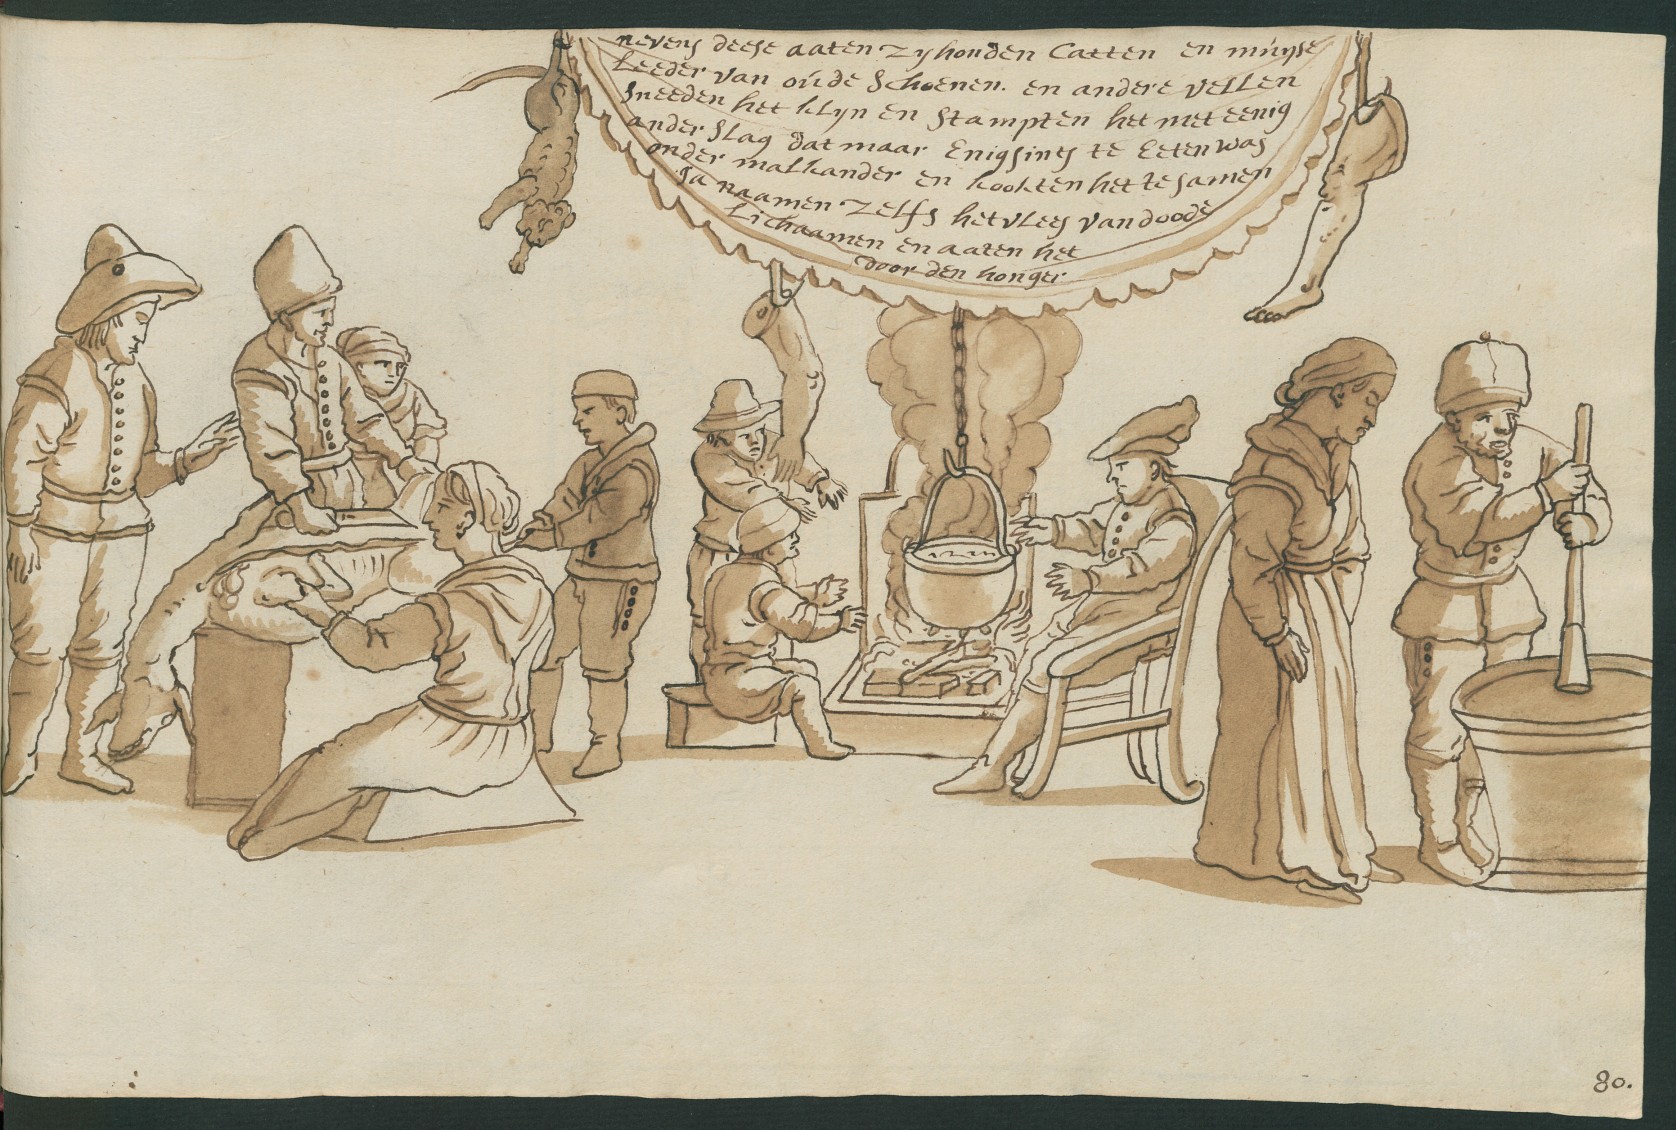 nevens deese aaten zy honden Catten en muyse
Leeder van oude Schoenen. en andere vellen
sneeden het klyn en stampten het met eenig
ander slag dat maar Enigsints te Eeten was
onder malkander en kookten het te samen
Ja naamen zelfs het vlees van doode
Lichaamen en aaten het
door den honger
80.